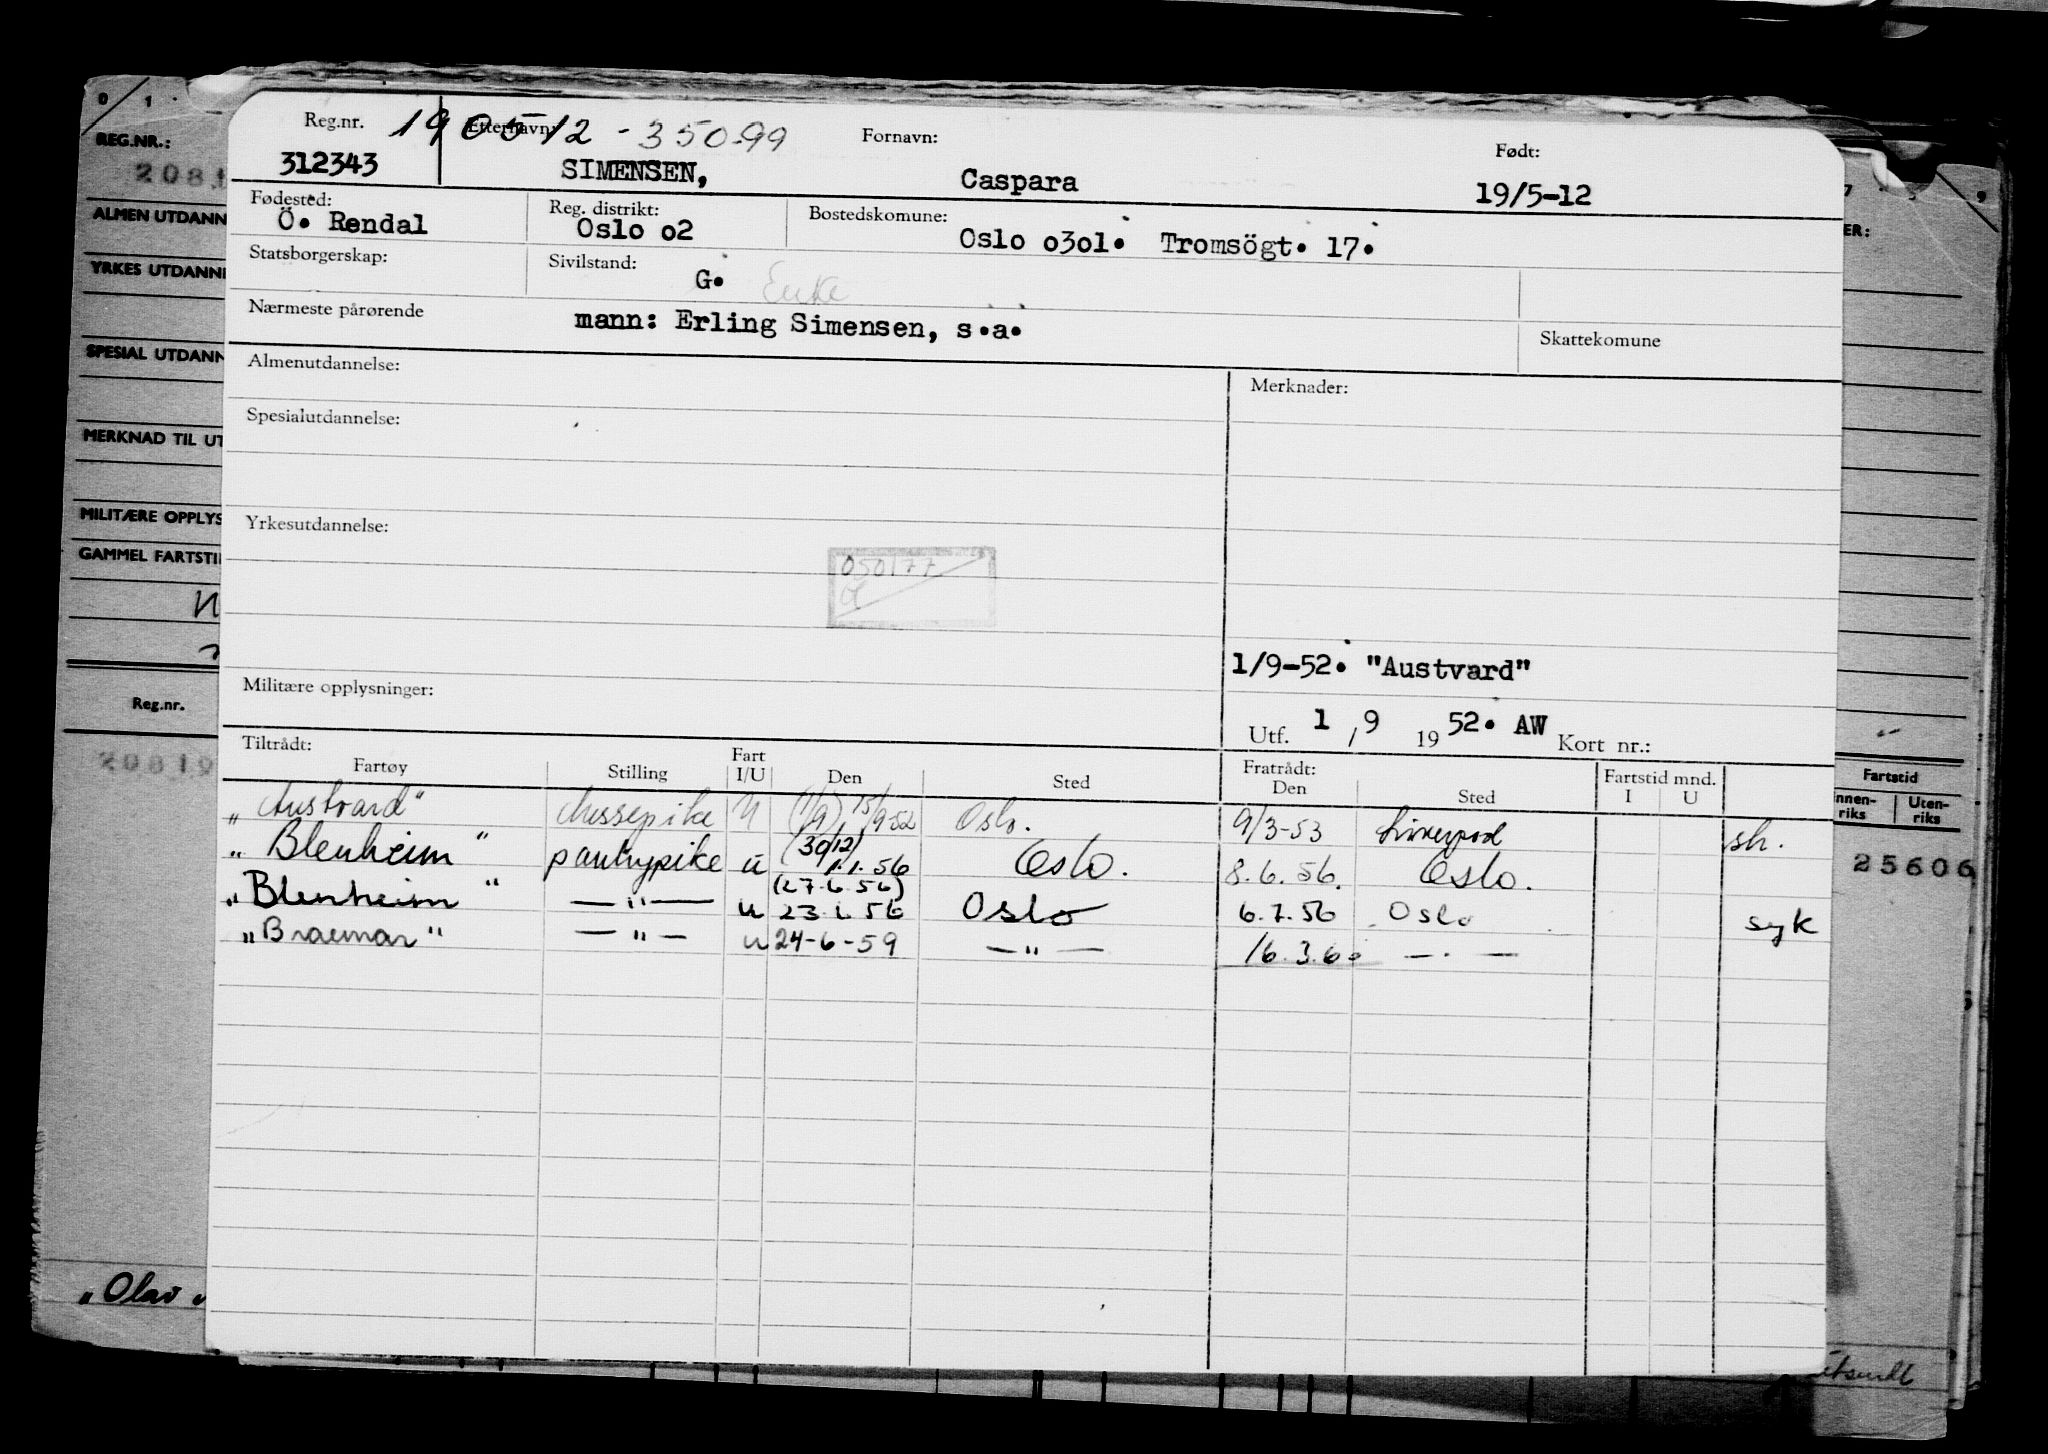 0 1
REG.NR.:
20819
ALMEN UTDANN
YRKES UTDANN
SPESIAL UTDANN
MERKNAD TIL UT
MILITÆRE OPPLYS
GAMMEL FARTSTI
Reg.nr.
20819
"Olav"
Reg.nr. 190512-35099 Etternavn: Fornavn: Født:
312343 SIMENSEN, Caspara 19/5-12
Fødested: Reg. distrikt: Bostedskomune:
Ö. Rendal Oslo o2 Oslo o3o1. Tromsögt. 17.
Statsborgerskap: Sivilstand: G. Enke
Nærmeste pårørende mann: Erling Simensen, s.a. Skattekomune
Almenutdannelse: Merknader:
Spesialutdannelse:
Yrkesutdannelse:
050177
1/9-52. "Austvard"
Militære opplysninger:
Utf. 1 / 9 19 52. AW Kort nr.:
Tiltrådt: Fratrådt:
Fartøy Stilling Fart I/U Den Sted Den Sted Fartstid mnd. I U
"Austvard" Messepike U (1/9) 15/9 52 Oslo. 9/3-53 Liverpool
"Blenheim" pantrypike u (30/12) 1.1.56 Oslo. 8.6.56. Oslo.
"Blenheim" —"— u (27.6.56) 23.6.56 Oslo 6.7.56 Oslo syk
"Braemar" —"— u 24-6-59 —"— 16.3.60 —"—
7 9
ER:
Fartstid
nnen-riks Uten-riks
25606